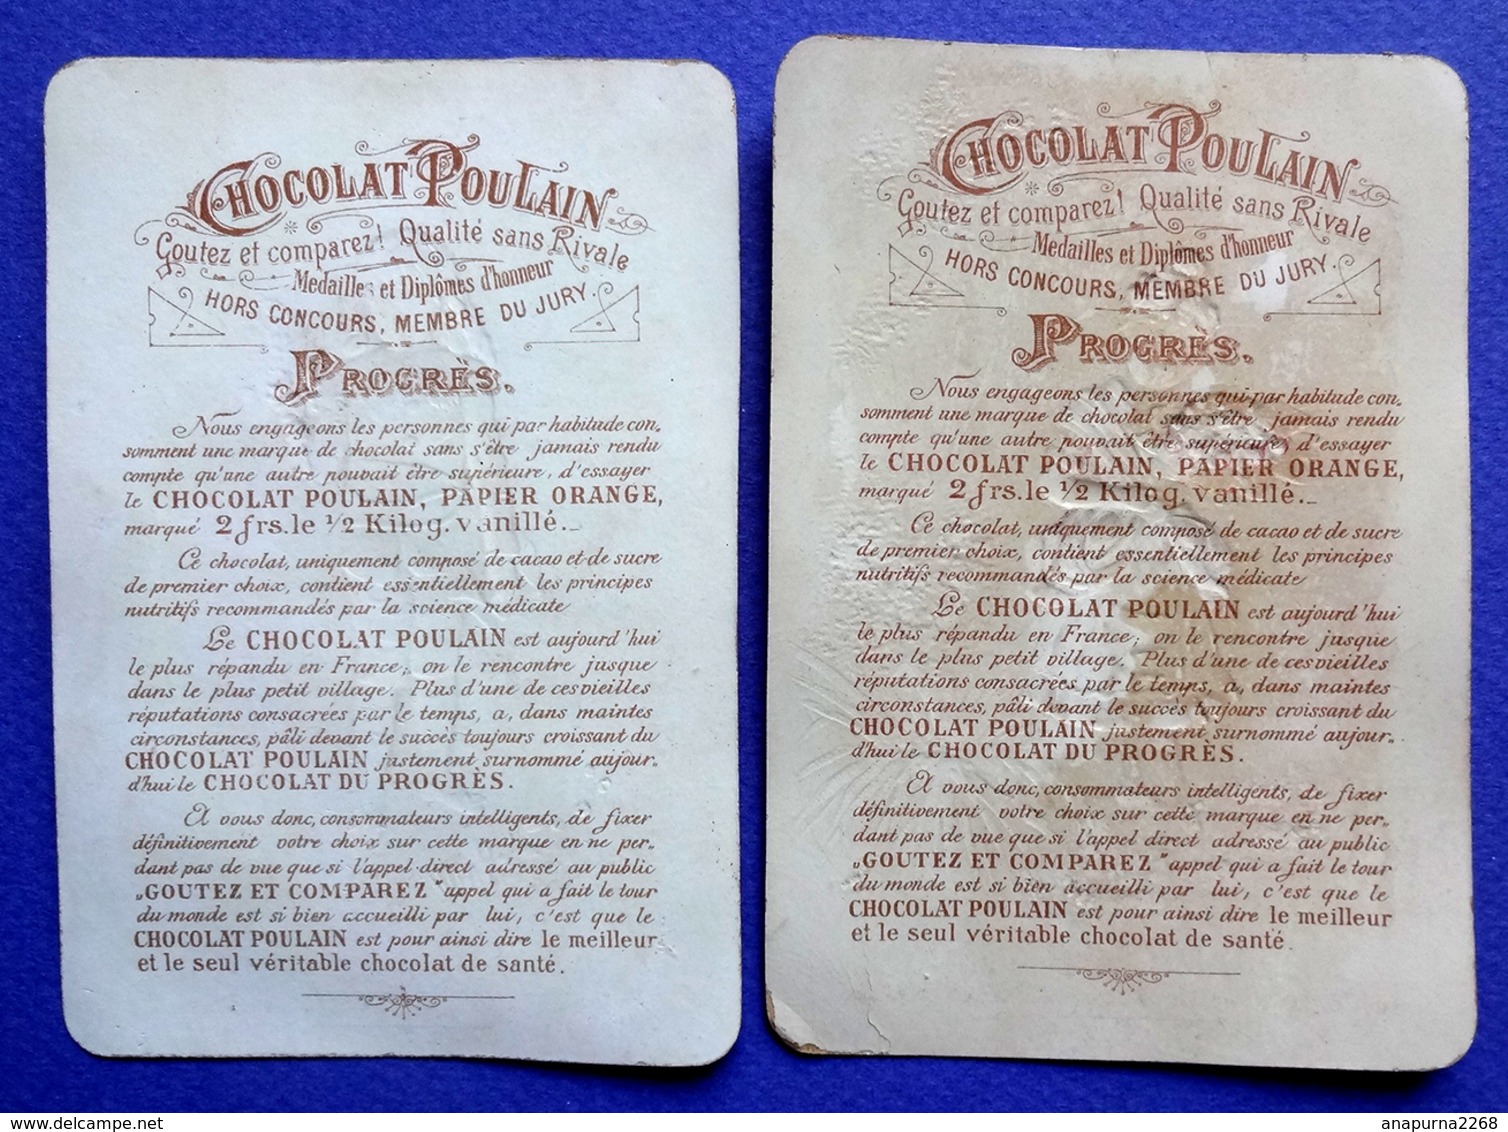 CHOCOLAT POULAIN
Goutez et comparez! Qualité sans Rivale
Medailles et Diplômes d'honneur
HORS CONCOURS, MEMBRE DU JURY.
PROGRÈS.
Nous engageons les personnes qui par habitude con„
somment une marque de chocolat sans s'être jamais rendu
compte qu'une autre pouvait être supérieure, d'essayer
le CHOCOLAT POULAIN, PAPIER ORANGE,
marqué 2 frs. le 1/2 Kilog. vanillé._
Ce chocolat, uniquement composé de cacao et de sucre
de premier choix, contient essentiellement les principes
nutritifs recommandés par la science médicate
Le CHOCOLAT POULAIN est aujourd'hui
le plus répandu en France; on le rencontre jusque
dans le plus petit village. Plus d'une de ces vieilles
réputations consacrées par le temps, a, dans maintes
circonstances, pâli devant le succès toujours croissant du
CHOCOLAT POULAIN justement surnommé aujour„
d'hui le CHOCOLAT DU PROGRÈS.
A vous donc, consommateurs intelligents, de fixer
définitivement votre choix sur cette marque en ne per„
dant pas de vue que si l'appel direct adressé au public
„GOUTEZ ET COMPAREZ" appel qui a fait le tour
du monde est si bien accueilli par lui, c'est que le
CHOCOLAT POULAIN est pour ainsi dire le meilleur
et le seul véritable chocolat de santé.
CHOCOLAT POULAIN
Goutez et comparez! Qualité sans Rivale
Medailles et Diplômes d'honneur
HORS CONCOURS, MEMBRE DU JURY.
PROGRÈS.
Nous engageons les personnes qui par habitude con„
somment une marque de chocolat sans s'être jamais rendu
compte qu'une autre pouvait être supérieure, d'essayer
le CHOCOLAT POULAIN, PAPIER ORANGE,
marqué 2 frs. le 1/2 Kilog. vanillé._
Ce chocolat, uniquement composé de cacao et de sucre
de premier choix, contient essentiellement les principes
nutritifs recommandés par la science médicate
Le CHOCOLAT POULAIN est aujourd'hui
le plus répandu en France; on le rencontre jusque
dans le plus petit village. Plus d'une de ces vieilles
réputations consacrées par le temps, a, dans maintes
circonstances, pâli devant le succès toujours croissant du
CHOCOLAT POULAIN justement surnommé aujour„
d'hui le CHOCOLAT DU PROGRÈS.
A vous donc, consommateurs intelligents, de fixer
définitivement votre choix sur cette marque en ne per„
dant pas de vue que si l'appel direct adressé au public
„GOUTEZ ET COMPAREZ" appel qui a fait le tour
du monde est si bien accueilli par lui, c'est que le
CHOCOLAT POULAIN est pour ainsi dire le meilleur
et le seul véritable chocolat de santé.
anapurna2268